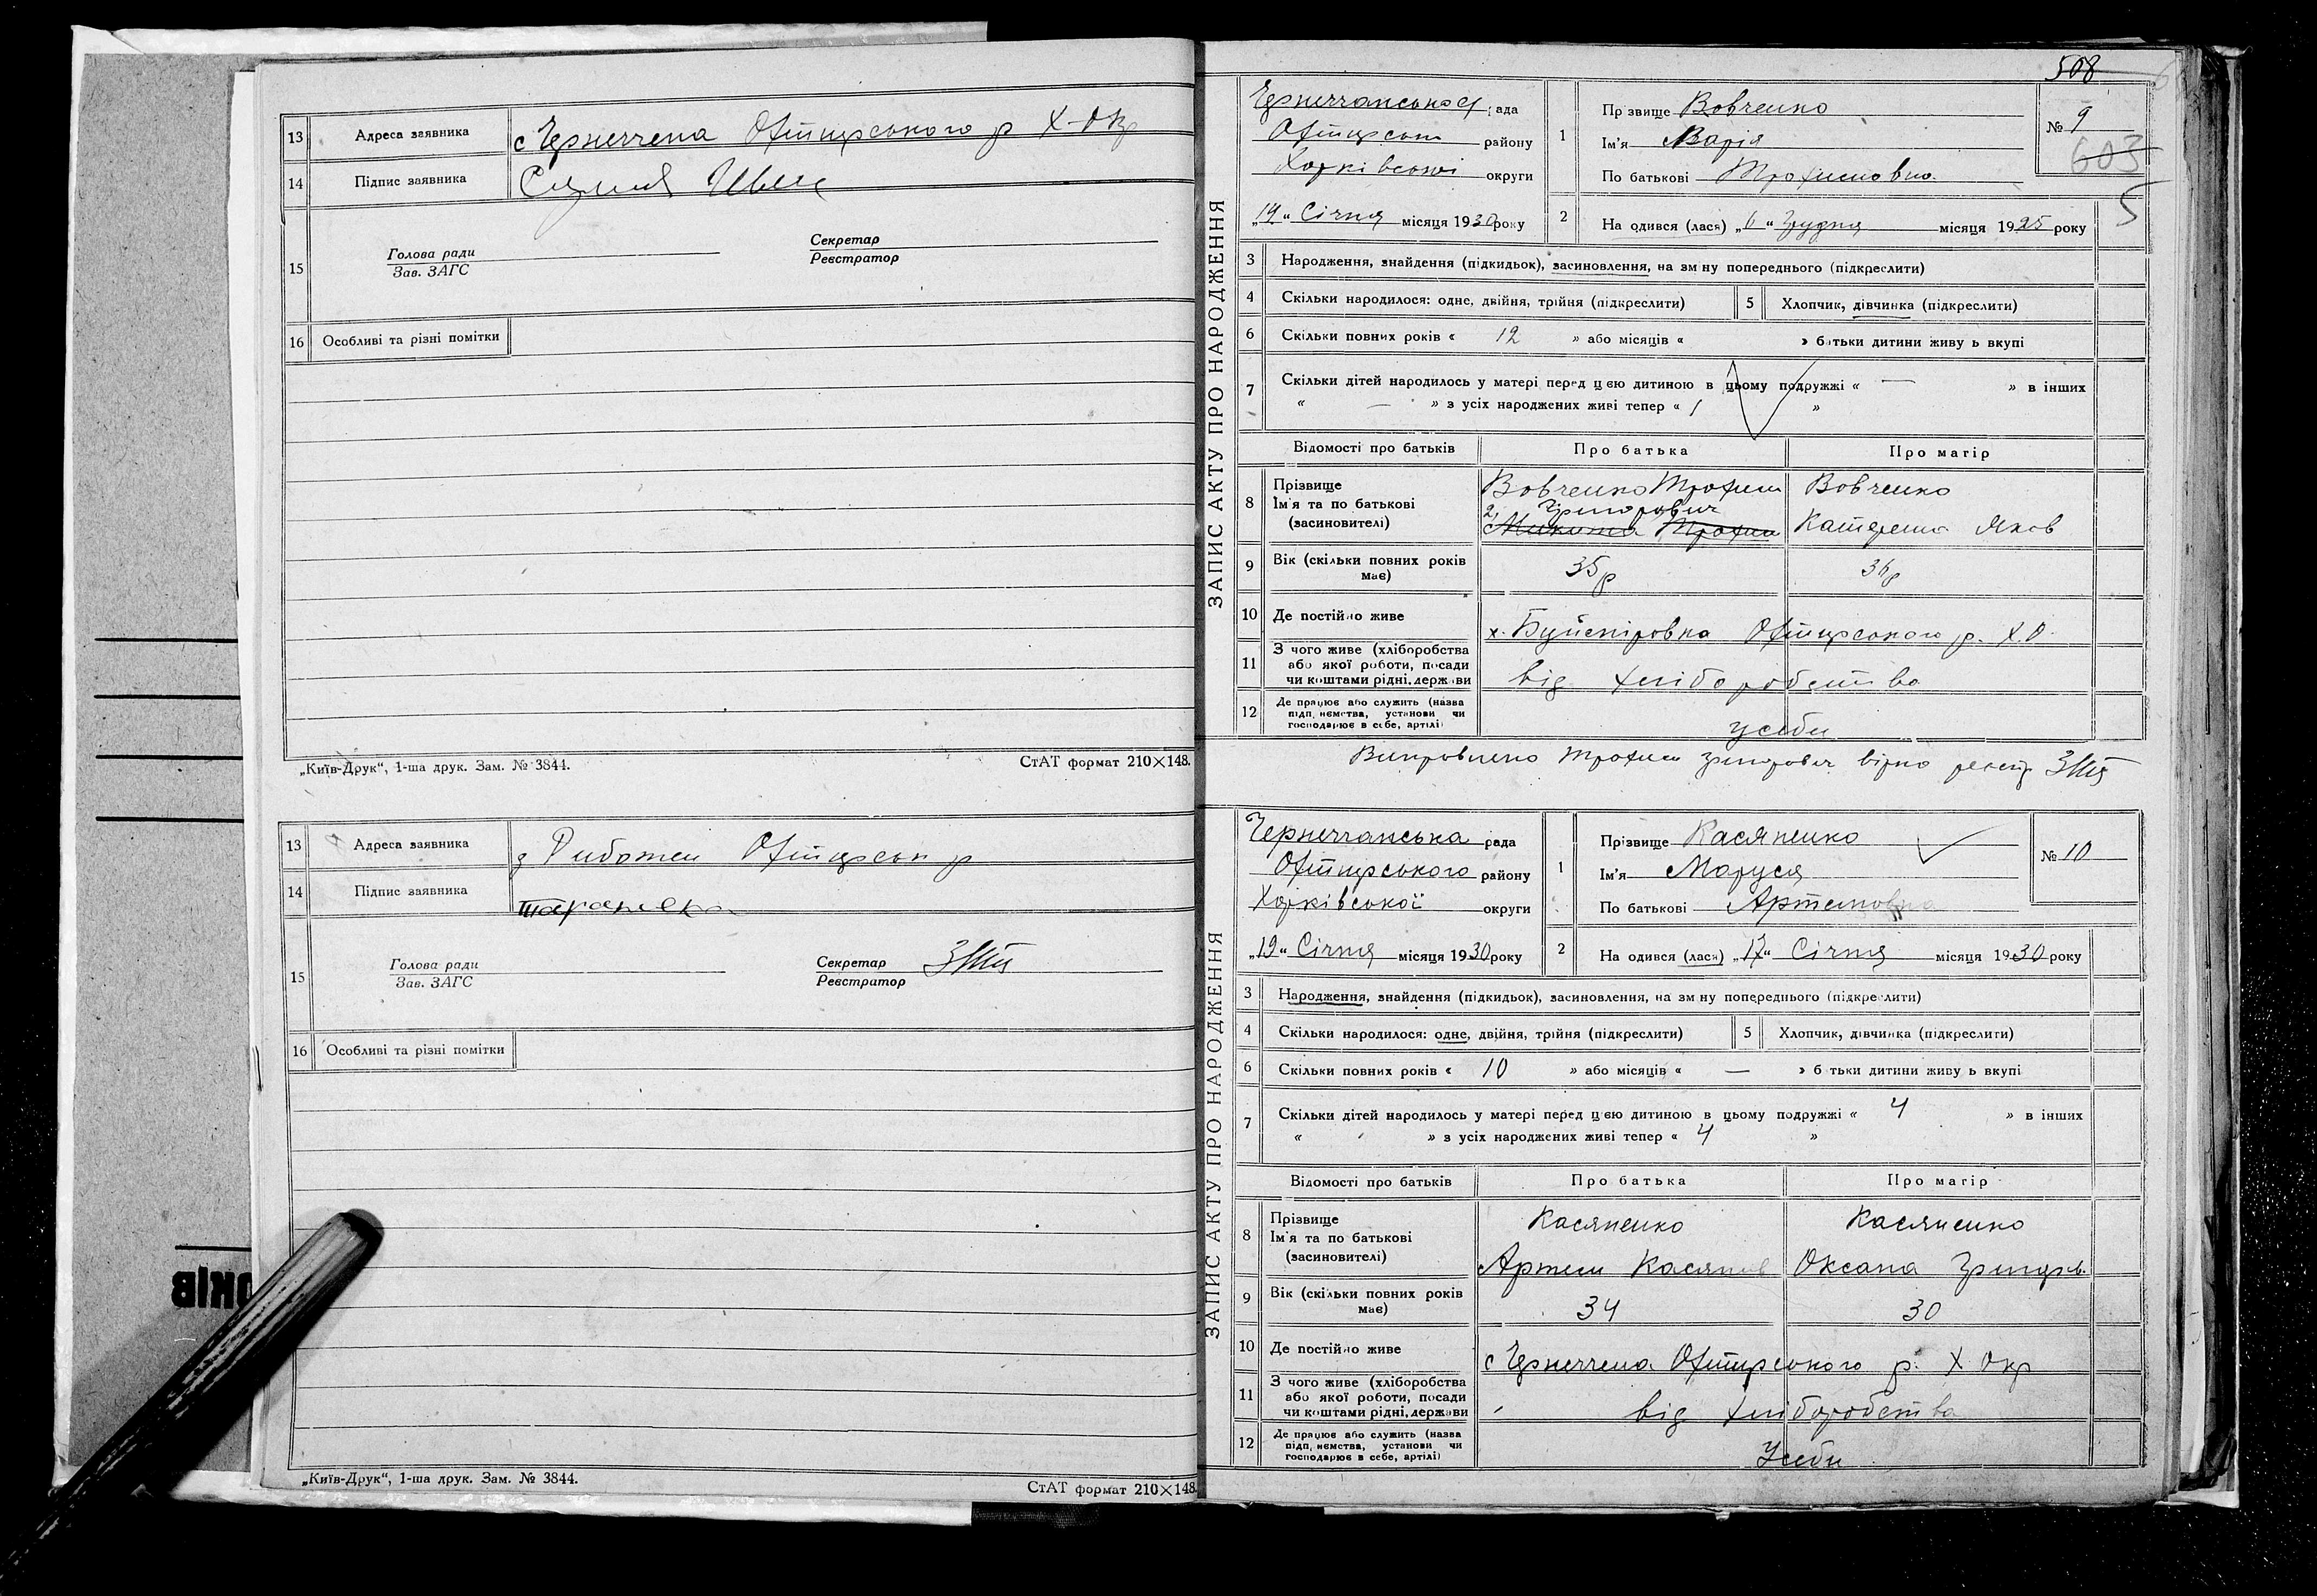 13 Адреса заявника с Чернеччена Охтирського р Х-Окр
14 Підпис заявника
15 Голова ради Секретар
Зав. ЗАГС Реєстратор
16 Особливі та різні помітки
„Київ-Друк“, 1-ша друк. Зам. № 3844. СтАТ формат 210×148.
13 Адреса заявника Охтирськ р
14 Підпис заявника
15 Голова ради Секретар
Зав. ЗАГС Реєстратор
16 Особливі та різні помітки
„Київ-Друк“, 1-ша друк. Зам. № 3844. СтАТ формат 210×148.
ОКІВ
508
ЗАПИС АКТУ ПРО НАРОДЖЕННЯ
рада 1 Прізвище Вовченко № 9
району Ім'я Марія 603
Харківської округи По батькові Трохимовна 5
„19“ Січня місяця 1930 року 2 Народився (лася) „6“ Грудня місяця 1925 року
3 Народження, знайдення (підкидьок), засиновлення, на зміну попереднього (підкреслити)
4 Скільки народилося: одне, двійня, трійня (підкреслити) 5 Хлопчик, дівчинка (підкреслити)
6 Скільки повних років « 12 » або місяців « » батьки дитини живуть вкупі
7 Скільки дітей народилось у матері перед цією дитиною в цьому подружжі « — » в інших
« — » з усіх народжених живі тепер « 1 »
Відомості про батьків Про батька Про матір
8 Прізвище Вовченко Трохим Вовченко
Ім'я та по батькові Григорович
(засиновителі) Микита Трохим Катерина Яков
9 Вік (скільки повних років має) 35 р 36 р
10 Де постійно живе х. Буймерівка Охтирського р. Х.О
11 З чого живе (хліборобства
або якої роботи, посади
чи коштами рідні, держави від хліборобства
12 Де працює або служить (назва
підприємства, установи чи
господарює в себе, артілі) усеби
Виправлено Трохим Григорович вірно реєстр
ЗАПИС АКТУ ПРО НАРОДЖЕННЯ
Чернеччанська рада 1 Прізвище Касяненко № 10
Охтирського району Ім'я Маруся
Харківської округи По батькові Артемовна
„19“ Січня місяця 1930 року 2 Народився (лася) „17“ Січня місяця 1930 року
3 Народження, знайдення (підкидьок), засиновлення, на зміну попереднього (підкреслити)
4 Скільки народилося: одне, двійня, трійня (підкреслити) 5 Хлопчик, дівчинка (підкреслити)
6 Скільки повних років « 10 » або місяців « — » батьки дитини живуть вкупі
7 Скільки дітей народилось у матері перед цією дитиною в цьому подружжі « 4 » в інших
« » з усіх народжених живі тепер « 4 »
Відомості про батьків Про батька Про матір
8 Прізвище Касяненко Касяненко
Ім'я та по батькові
(засиновителі) Артем Касянов Оксана Григорів.
9 Вік (скільки повних років має) 34 30
10 Де постійно живе с Чернеччена Охтирського р. Х Окр
11 З чого живе (хліборобства
або якої роботи, посади
чи коштами рідні, держави від хліборобства
12 Де працює або служить (назва
підприємства, установи чи
господарює в себе, артілі) Усеби